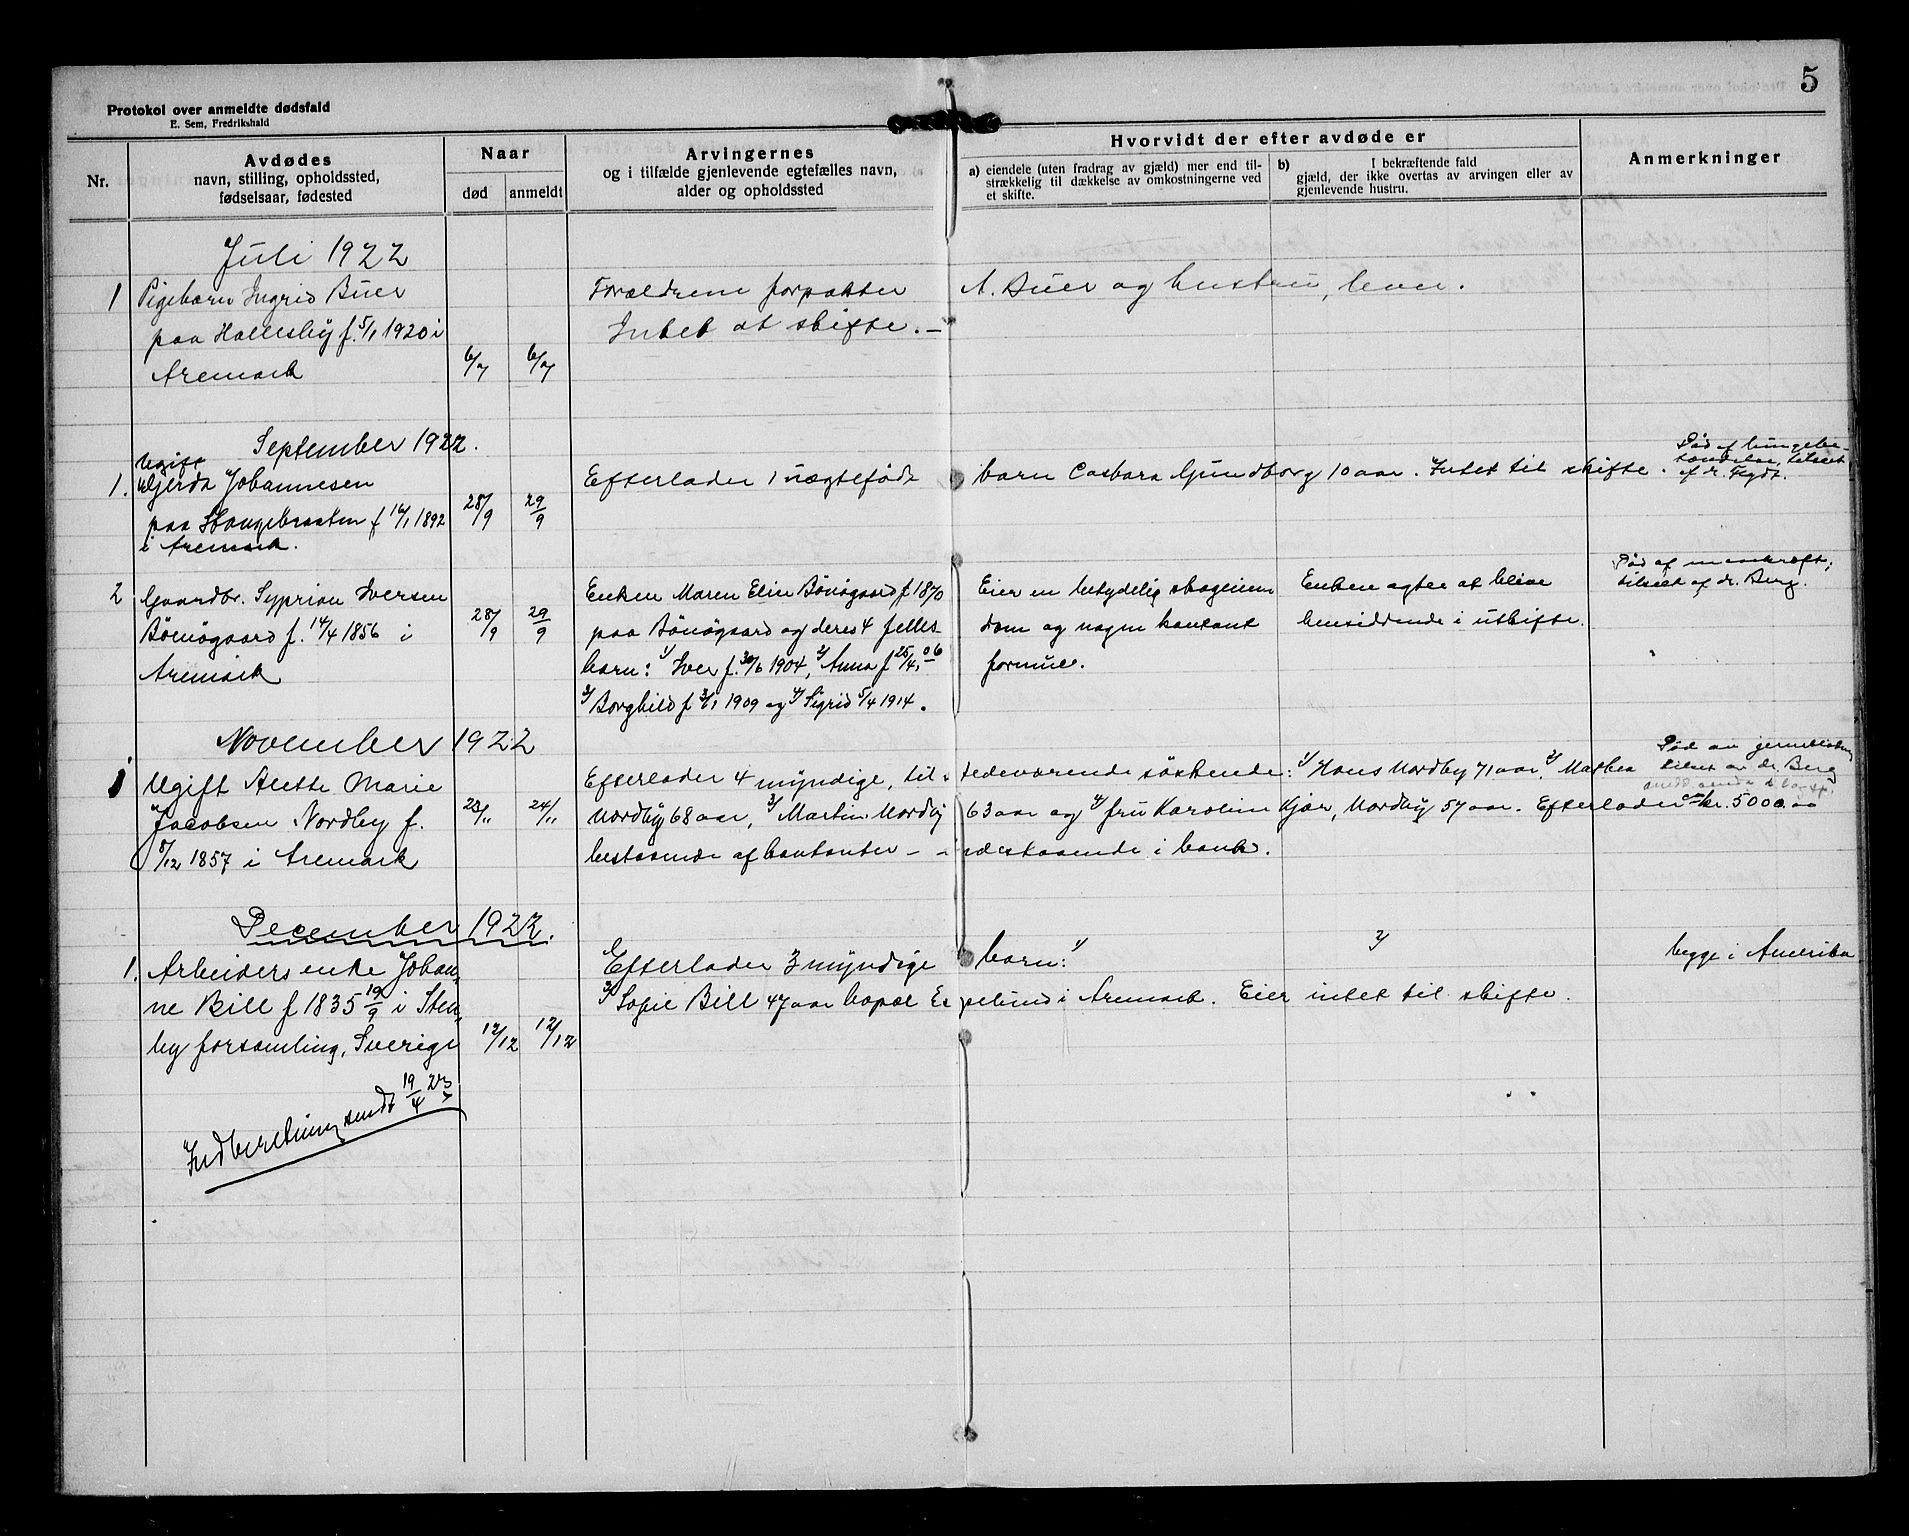 5
Protokol over anmeldte dødsfald
E. Sem, Fredrikshald
Nr.
Avdødes
navn, stilling, opholdssted,
fødselsaar, fødested
Naar
død
anmeldt
Arvingernes
og i tilfælde gjenlevende egtefælles navn,
alder og opholdssted
Hvorvidt der efter avdøde er
a) eiendele (uten fradrag av gjæld) mer end til-
strækkelig til dækkelse av omkostningerne ved
et skifte.
b) I bekræftende fald
gjæld, der ikke overtas av arvingen eller av
gjenlevende hustru.
Anmerkninger
Juli 1922
1 Pigebarn Ingrid Buer
paa Hallesby f. 5/1 1920 i
Aremark
6/7 6/7
Forældrene forpakter A. Buer og hustru, lever.
Intet at skifte. –
September 1922.
1. Ugift
Gjerda Johannesen
paa Stangebraaten f 16/1 1892
i Aremark.
28/9 29/9
Efterlader 1 uægtefødt barn Gundborg 10 aar. Intet til skifte.
Død af lungebe
tændelse, tilseet
af dr. Flydt.
2 Gaardbr. Syprian Iversen
Bönögaard f. 14/4 1856 i
Aremark
28/9 29/9
Enken Maren Elin Bönögaard f 1870
paa Bönögaard og deres 4 felles
barn: 1/ Iver f. 30/6 1904, 2/ Anna f 25/4 06
3/ Borghild f 3/1 1909 og 4/ Sigrid 5/4 1914.
Eier en betydelig skogeien
dom og nogen kontant
formue.
Enken agter at blive
hensiddende i uskifte.
Død af mavekræft;
tilseet af dr. Berg.
November 1922
1 Ugift Alette Marie
Jacobsen Nordby f.
8/12 1857 i Aremark
23/11 24/11
Efterlader 4 myndige, til-stedeværende söskende: 1/ Hans Nordby 71 aar, 2/ Mathea
Nordby 68 aar, 3/ Martin Nordby 63 aar og 4/ fru Karoline Kjær, Nordby 57 aar. Efterlader ca kr. 5000.00
bestaaende af kontanter – indestaaende i bank.
Død av
tilseet av dr. Berg
December 1922.
1. Arbeiders enke Johan-
ne Bill f 1835 19/9 i Sten-
by forsamling, Sverige
12/12 12/12
Efterlader 3 myndige barn: 1/ 2/ begge i Amerika
3/ Sofie Bill 47 aar bopæl i Aremark. Eier intet til skifte.
Indberetning sendt 19/4 23